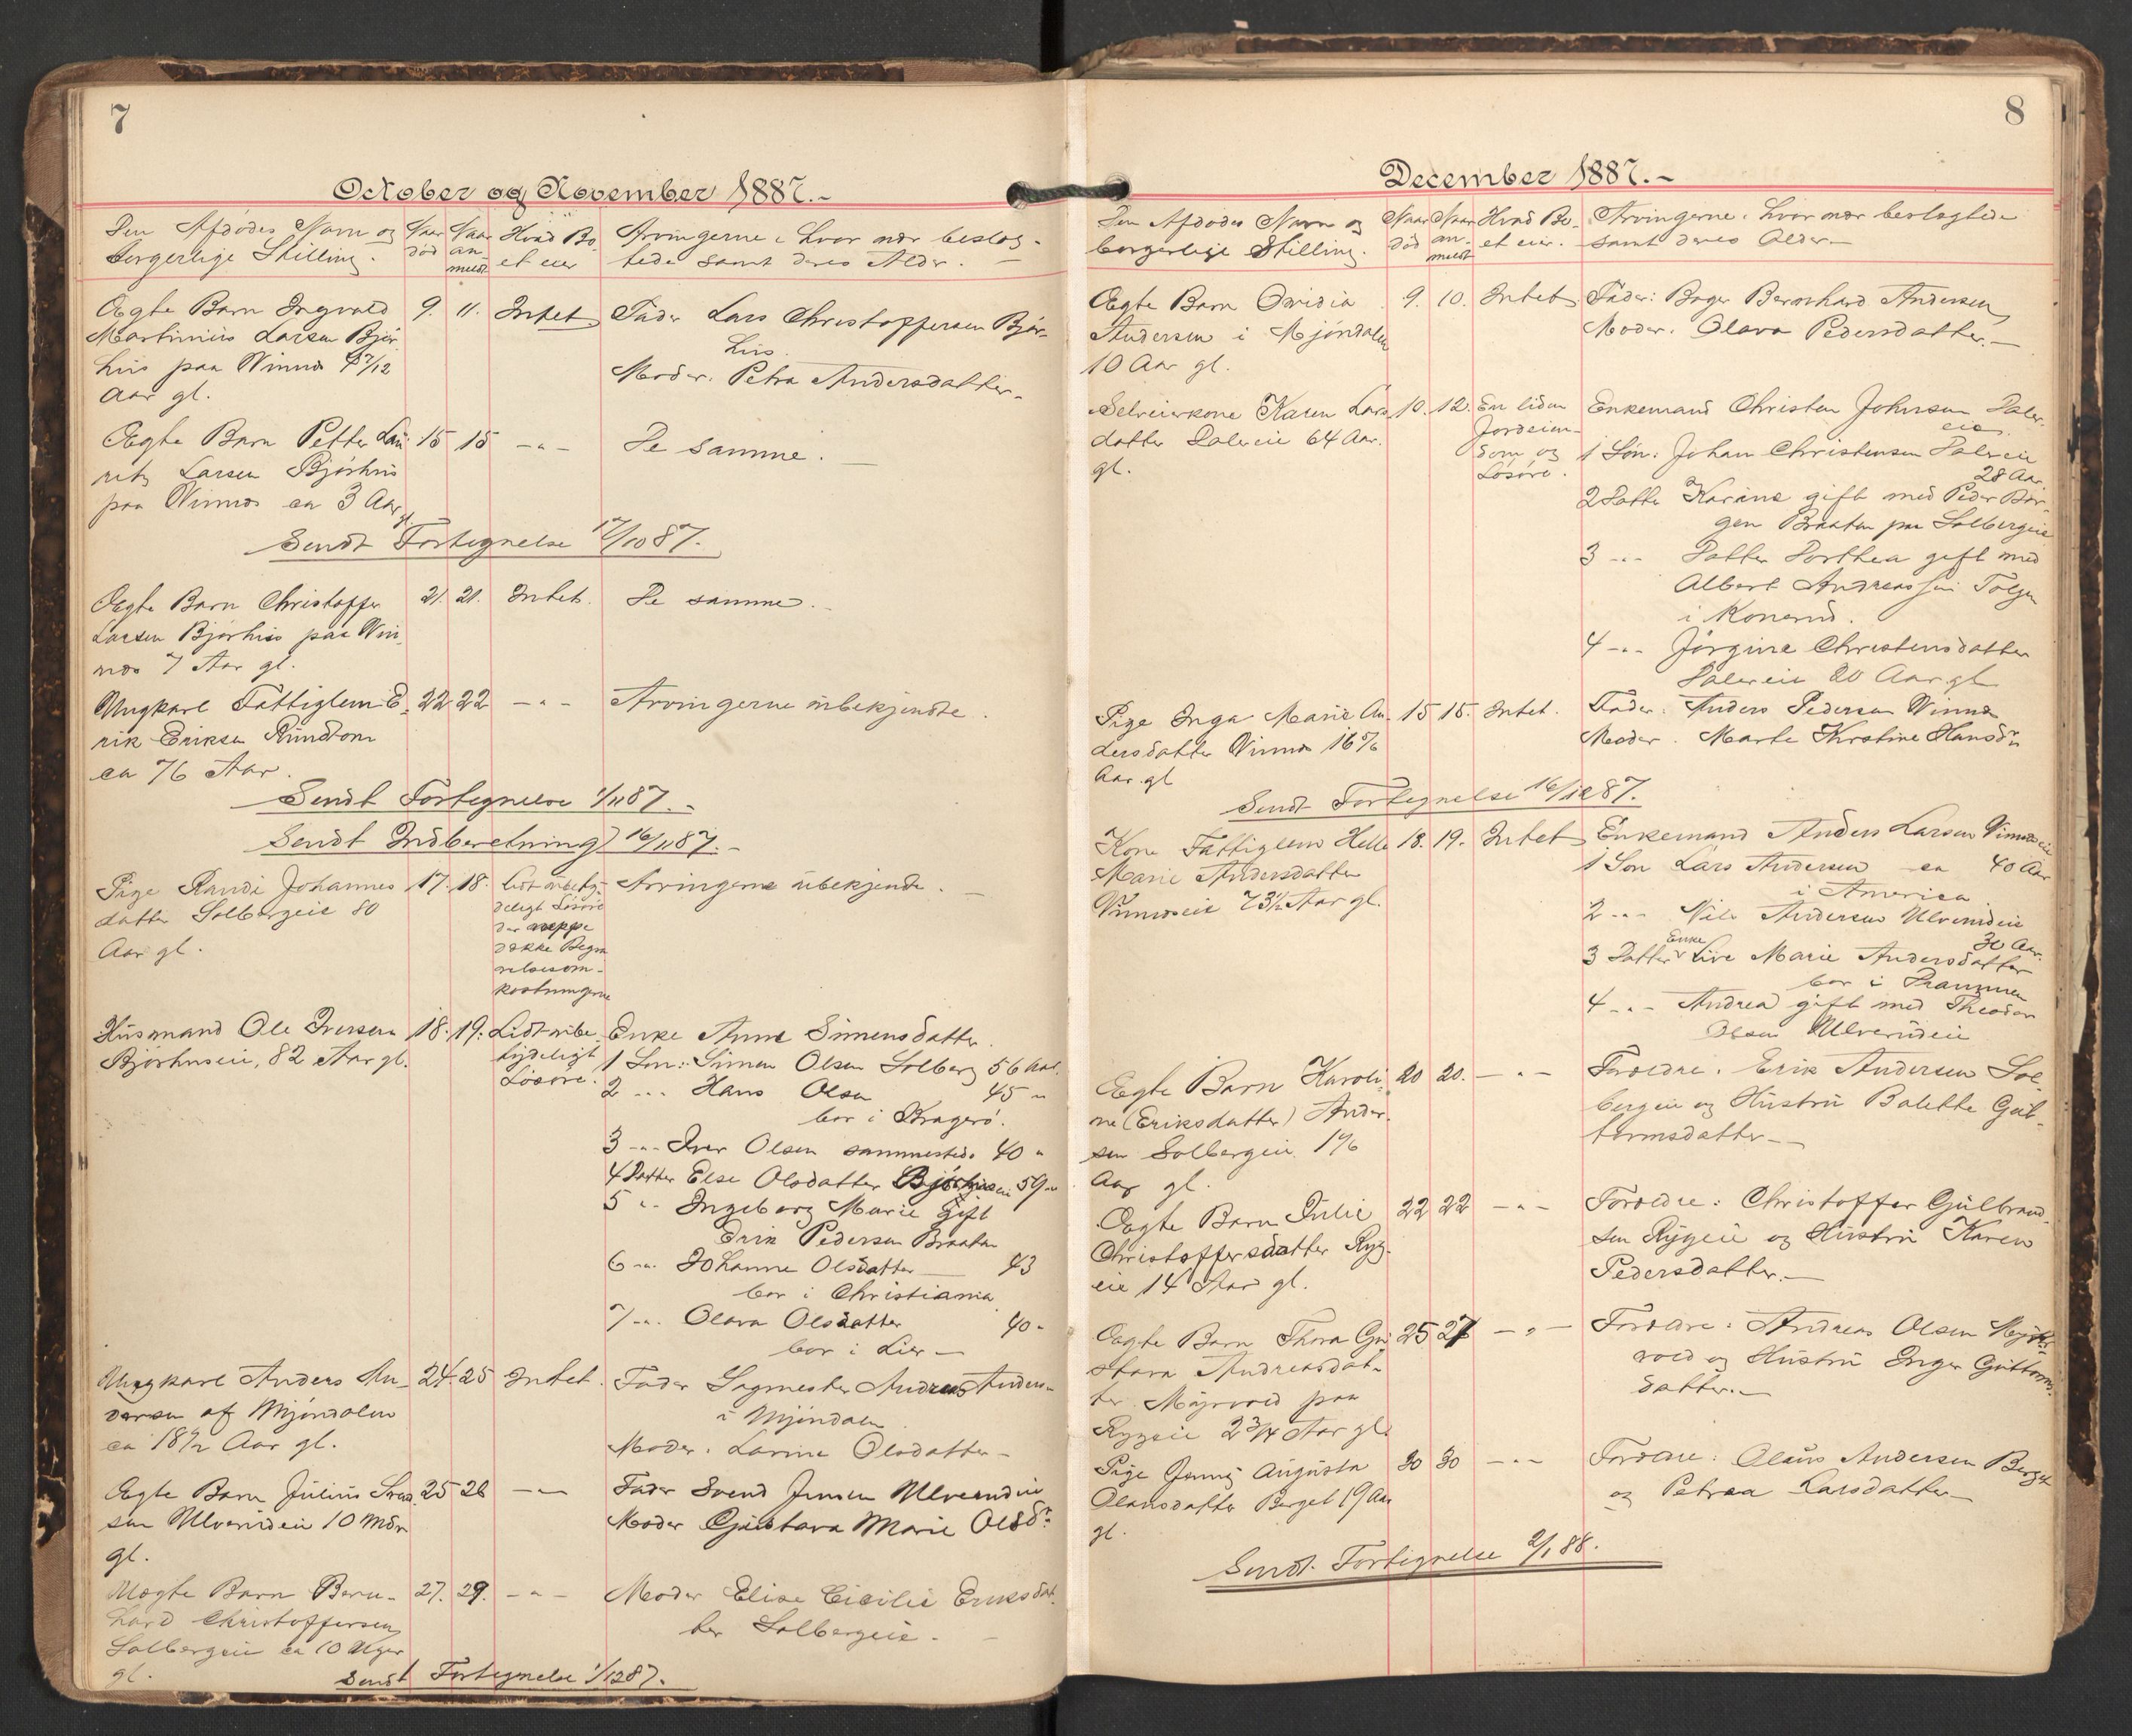 7
October og November 1887.-
Den Afdødes Navn og
borgerlige Stilling.
Naar
død
Naar
an-
meldt
Hvad Bo-
et eier
Arvingerne, hvor nær beslæg-
tede samt deres Alder. —
Ægte Barn Ingvald
Martinius Larsen Bjør
hus paa Winnes
Aar gl.
9. 11. Intet
Fader Lars Christoffersen Bjør-
hus.
Moder. Petra Andersdatter.
Ægte Barn Petter Lau
ritz Larsen Bjørhus
paa Winnes ca 3 Aar
gl.
15 15 -"-
De samme. —
Sendt Fortegnelse 17/10 87.
Ægte Barn Christoffer
Larsen Bjørhus paa Win
nes 7 Aar gl.
21. 21. Intet.
De samme.
Ungkarl Fattiglem E
rik Eriksen Rundtom
ca 76 Aar.
22 22 -"-
Arvingerne ubekjendte.
Sendt Fortegnelse 1/11 87.-
Sendt Indberetning 16/11 87.-
Pige Randi Johannes
datter Solbergeie 80
Aar gl.
17. 18.
lidt ubety-
deligt Løsøre
der neppe
dække Begra
velsesom-
kostningerne
Arvingerne ubekjendt. —
Husmand Ole Iversen
Bjørhuseie, 82 Aar gl.
18. 19.
Lidt ube
tydeligt
Løsøre.
Enke Anne Simensdatter.
1 Søn: Simen Olsen Solberg 56 Aar.
2 -"- Hans Olsen 45 "
bor i Kragerø.
3 -"- Iver Olsen sammesteds 40 "
4 Datter Else Olsdatter Bjørhuseie 59 "
5 "- Ingeborg Marie gift
Erik Pedersen Braaten
6 -"- Johanne Olsdatter — 43
bor i Christiania
7 -"- Olava Olsdatter 40 "
bor i Lier —
Ungkarl Anders An-
dersen af Mjøndalen
ca 18 1/2 Aar gl.
24. 25 Intet.
Fader Sagmester Andreas Anders-
i Mjøndalen
Moder. Larine Olsdatter —
Ægte Barn Julius Svend
sen Ulverudeie 10 Mdr
gl.
25 26 -"-
Fader Svend Jensen Ulverudeie
Moder Gjustava Marie Olsd.
Uægte Barn Bern-
hard Christoffersen
Solbergeie ca 10 Uger
gl.
27. 29. -"-
Moder Elise Cicilie Eriksdat
ter Solbergeie. —
Sendt Fortegnelse 1/12 87.
8
December 1887.-
Den Afdødes Navn og
borgerlige Stilling.
Naar
død
Naar
an-
meldt
Hvad Bo-
et eier.
Arvingerne, hvor nær beslægtede
samt deres Alder —
Ægte Barn Ovidia
Andersen i Mjøndalen
10 Aar gl.
9. 10. Intet
Fader: Bager Bernhard Andersen
Moder. Olava Pedersdatter. —
Selveierkone Karen Lars
datter Dalereie 64 Aar.
gl.
10. 12.
En liden
Jordeien-
dom og
Løsøre.
Enkemand Christen Johnsen Daler-
eie.
1 Søn: Johan Christensen Dalereie
28 Aar
2 Datte Karine gift med Peder Bør-
gen Braaten paa Solbergeie
3 -"- Datter Dorthea gift med
Albert Andreassen
i Konerud.
4 -"- Jørgine Christensdatter
Dalereie 20 Aar gl
Pige Inga Marie An
dersdatter Winnes
Aar. gl
15 15. Intet.
Fader. Anders Pedersen Winnes
Moder. Marte Kirstine Hansd
Sendt Fortegnelse 16/12 87.
Kone Fattiglem Helle
Marie Andersdatter
Vinneseie 73 1/2 Aar gl.
18. 19. Intet
Enkemand Anders Larsen Vinneseie
1 Søn Lars Andersen ca 40 Aar
i America
2 -"- Nils Andersen Ulverudeie
30 Aar.
Enke
3 Datter Live Marie Andersdatter
bor i Drammen
4 -"- Andrea gift med Theodor
Olsen Ulverudeie
Ægte Barn Karoli-
ne (Eriksdatter) Ander-
sen Solbergeie
Aar gl.
20 20. -"-
Forældre. Erik Andersen Sol
bergeie og Hustru Balette Gut-
tormsdatter —
Ægte Barn Julie
Christoffersdatter Ryg-
eie 14 Aar gl.
22 22 -"-
Forældre: Christoffer Gulbrand-
sen Rygeie og Hustru Karen
Pedersdatter. —
Ægte Barn Thora Gu
stava Andreasdat-
ter Myrvold paa
Rygeie 2 3/4 Aar gl.
25 27 -"-
Forældre: Andreas Olsen Myr-
vold og Hustru Inger Guttorms-
datter. —
Pige Jenny Augusta
Olausdatter Berget 19 Aar
gl.
30 30 -"-
Forældre: Olaus Andersen Berget
og Petrea Larsdatter —
Sendt Fortegnelse 2/1 88.